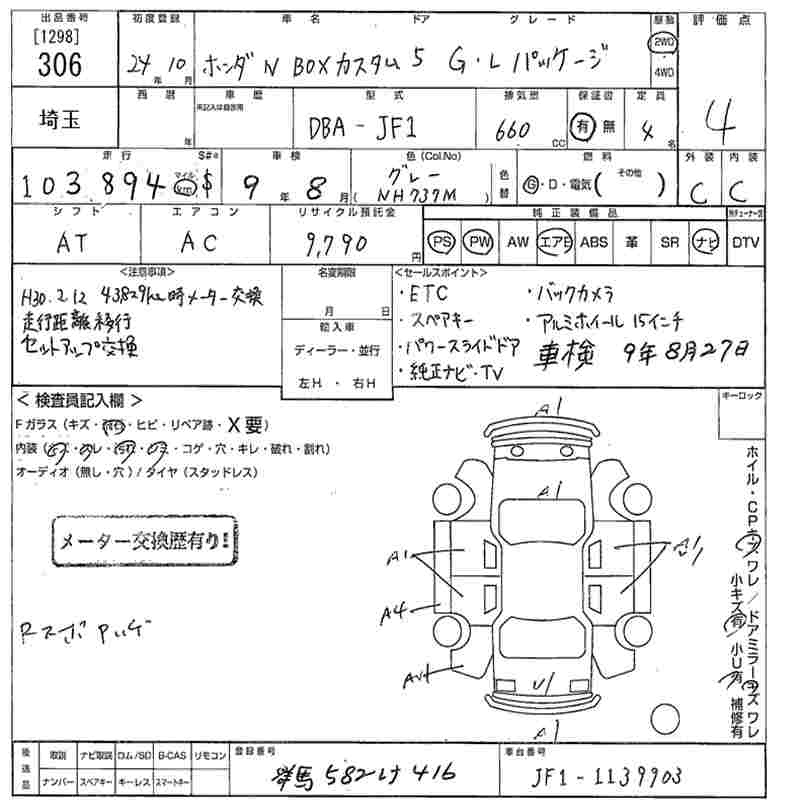 出品番号 初度登録 車名 ドア グレード 駆動 評価点
[1298]
306 24年 10月 ホンダ N BOXカスタム 5 G・Lパッケージ 2WD 4WD 4
埼玉 西暦 年 車歴 型式 排気量 保証書 定員
未記入は自家用
DBA-JF1 660 CC 有 無 4名
走行 マイル S#* 車検 色(Col.No) 色替 燃料 外装 内装
103,894 km $ 9年 8月 グレー (NH737M) G・D・電気( その他 ) C C
シフト エアコン リサイクル預託金 純正装備品 地デジチューナー付
AT AC 9,790円 PS PW AW エアB ABS 革 SR ナビ DTV
<注意事項> 名変期限 <セールスポイント>
H30.2.12 43829km時メーター交換
走行距離移行
セットアップ交換
月 日
輸入車
ディーラー・並行
左H・右H
・ETC ・バックカメラ
・スペアキー ・アルミホイール 15インチ
・パワースライドドア 車検 9年8月27日
・純正ナビ・TV
<検査員記入欄> キーロック
Fガラス(キズ・飛石・ヒビ・リペア跡・X要)
内装(キズ・スレ・汚れ・シミ・コゲ・穴・キレ・破れ・割れ)
オーディオ(無し・穴)/タイヤ(スタッドレス)
メーター交換歴有り!!
A1
A1
A1
A4
U1
A1
ホイル・CPキズ ワレ/ドアミラーキズ ワレ
小キズ有 小U有 補修有
後送品 取説 ナビ取説 ロム/SD B-CAS リモコン 登録番号 車台番号
ナンバー スペアキー キーレス スマートキー 群馬 582け416 JF1-1139903